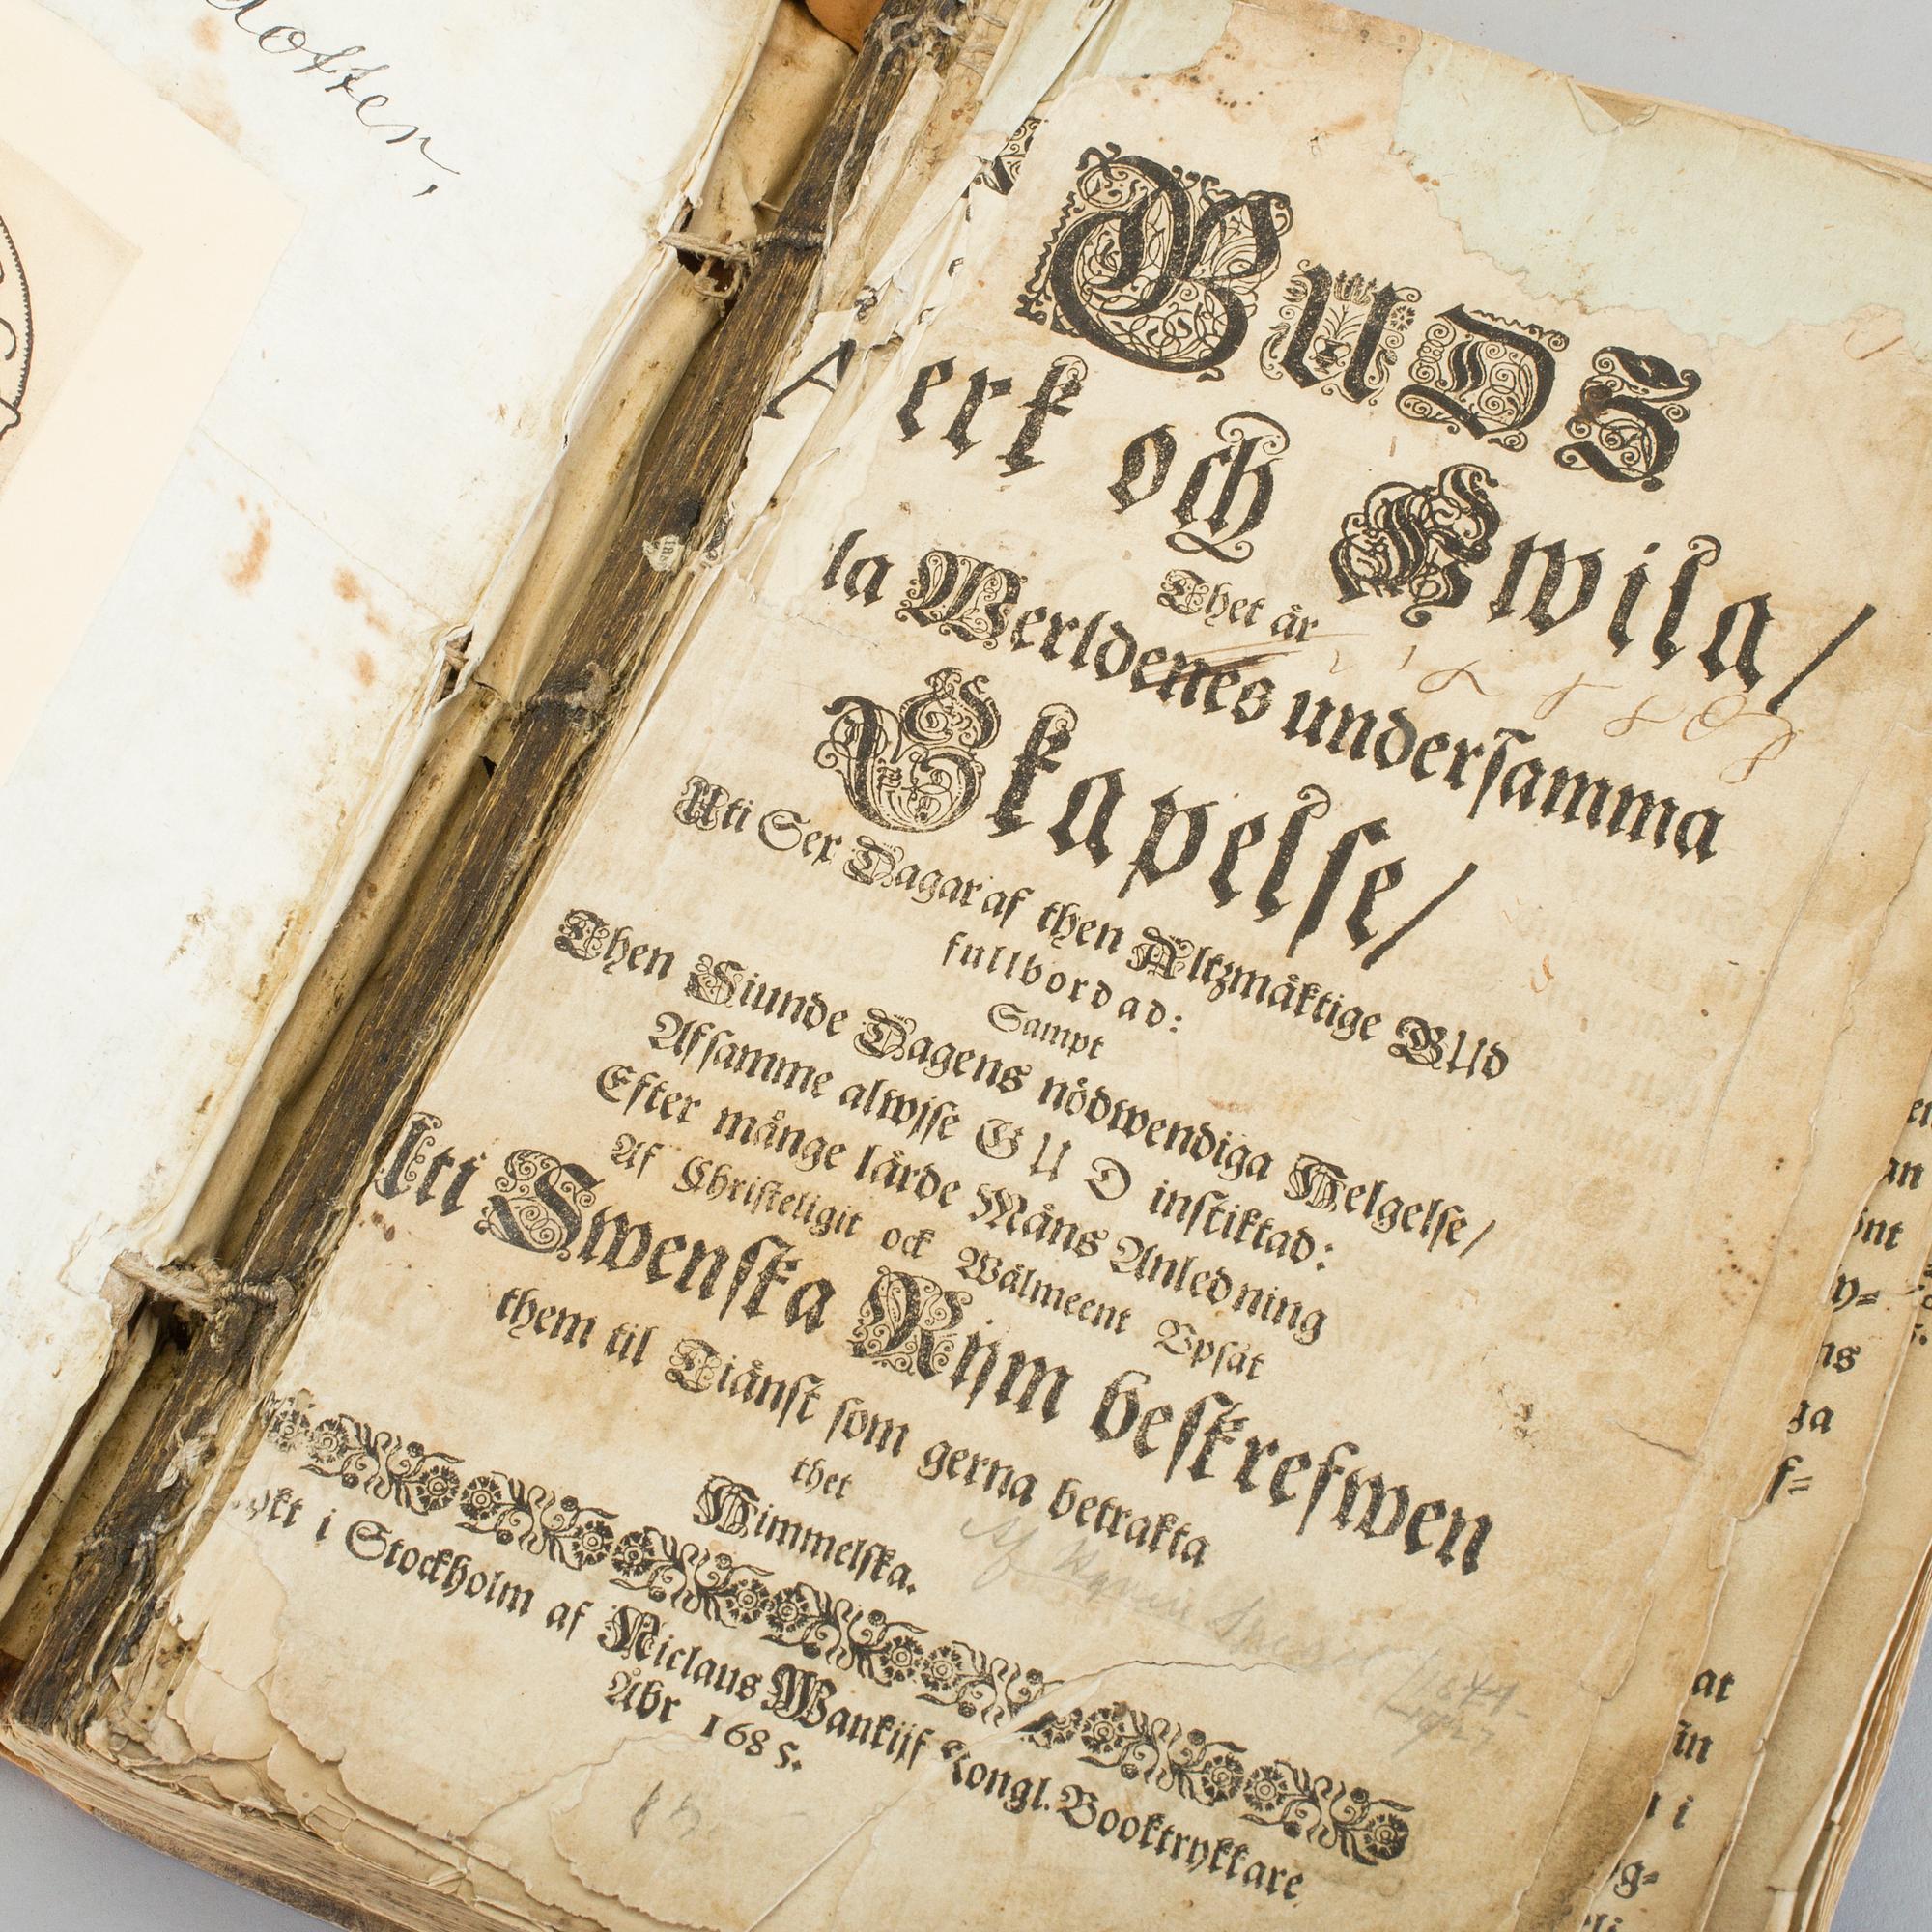 dotter,
GUDS
erk och Hwila/
Thet är
la Werldenes undersamma
Skapelse/
Uti Sex Dagar af then Altzmåktige GUd
fullbordad:
Sampt
Then Siunde Dagens nödwendiga Helgelse/
Afsamme alwjse GUD instiktad:
Efter månge lårde Måns Anledning
Af Christeligit ock Wålmeent Vpsåt
Uti Swenska Rijm beskrefwen
them til Tiånst som gerna betrakta
thet
Himmelska.
ykt i Stockholm af Niclaus Wankijf Kongl. Booktrykkare
Åhr 1685.